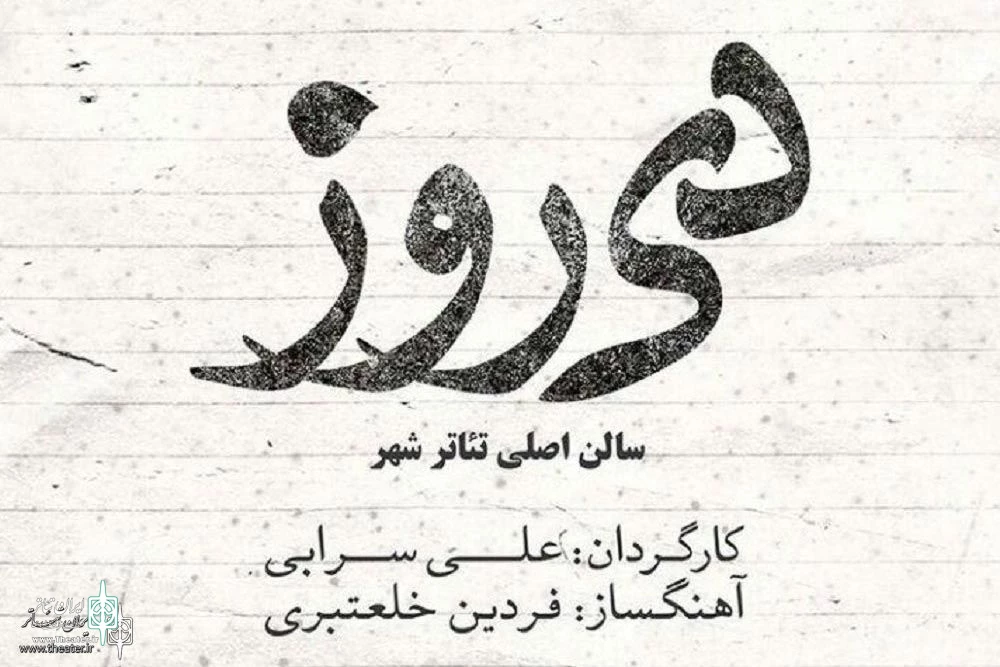 دی روز
سالن اصلی تئاتر شهر
کارگردان: علی سرابی
آهنگساز: فردین خلعتبری
ایران تئاتر
www.theater.ir
www.theater.ir